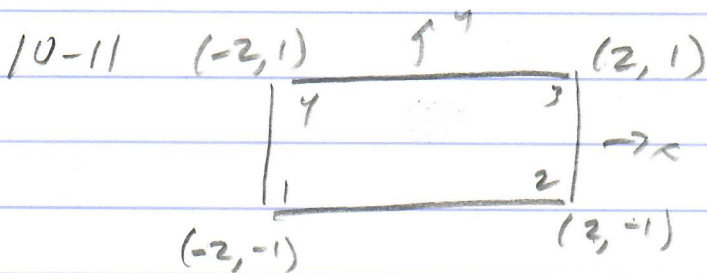 10-11 (-2, 1) ↑ y (2, 1)
4 3
→ x
1 2
(-2, -1) (2, -1)